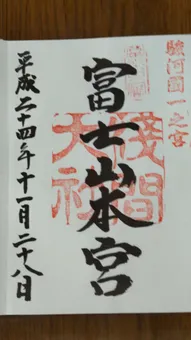 駿河國一之宮
富士山本宮
淺間大社
平成二十四年十一月二十八日